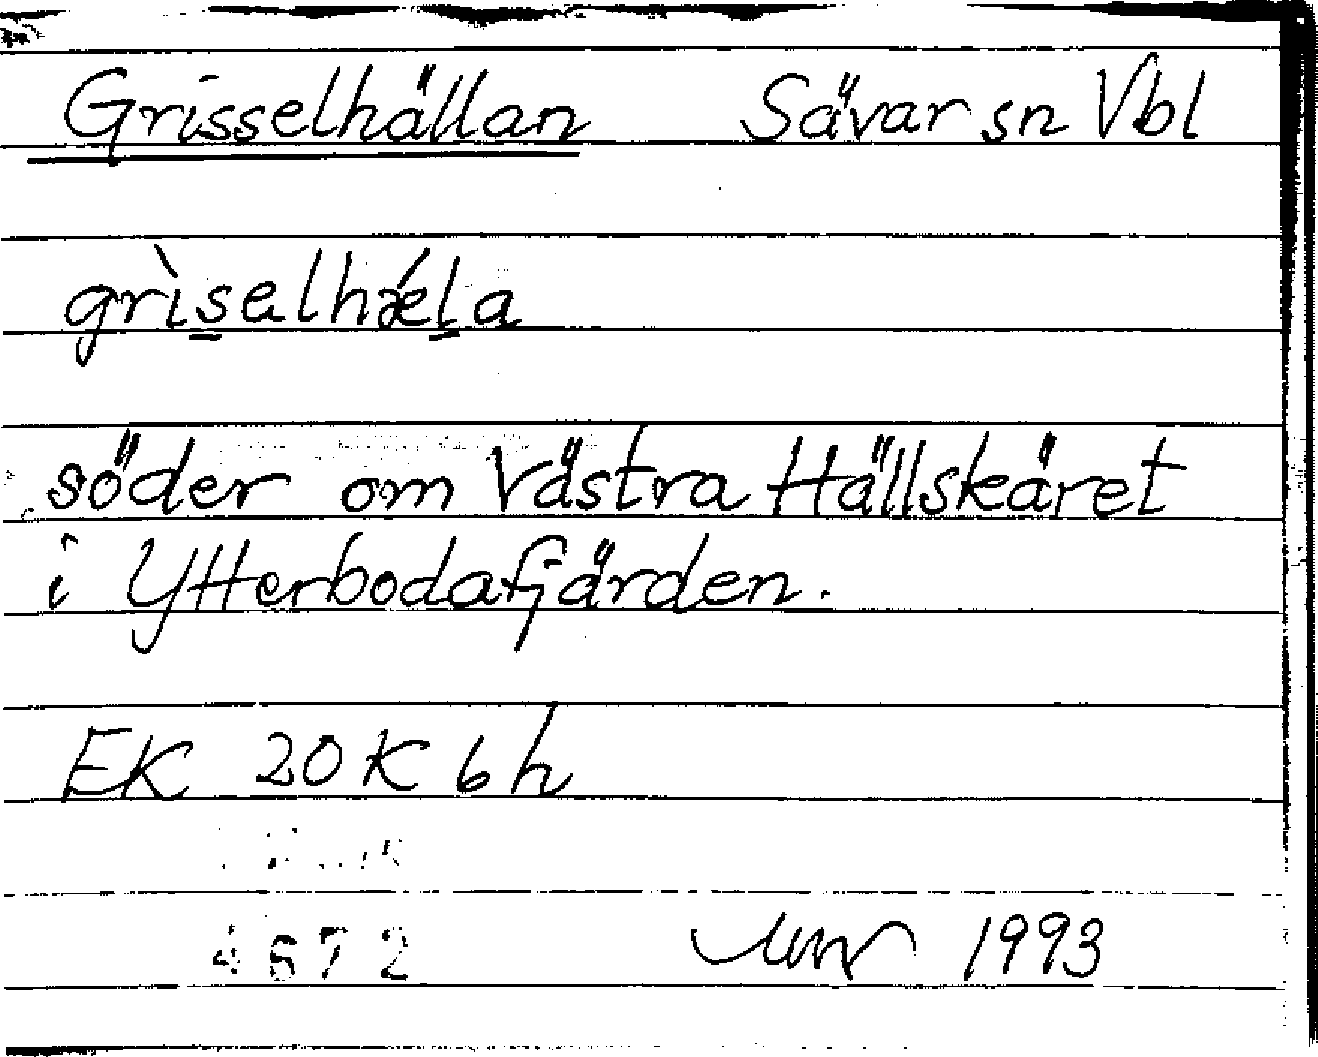 Grisselhällan Sävar sn Vbl
grìs̲alhǽl̲a
söder om Västra Hällskäret
i Ytterbodafjärden.
EK 20K 6h
4672 1993